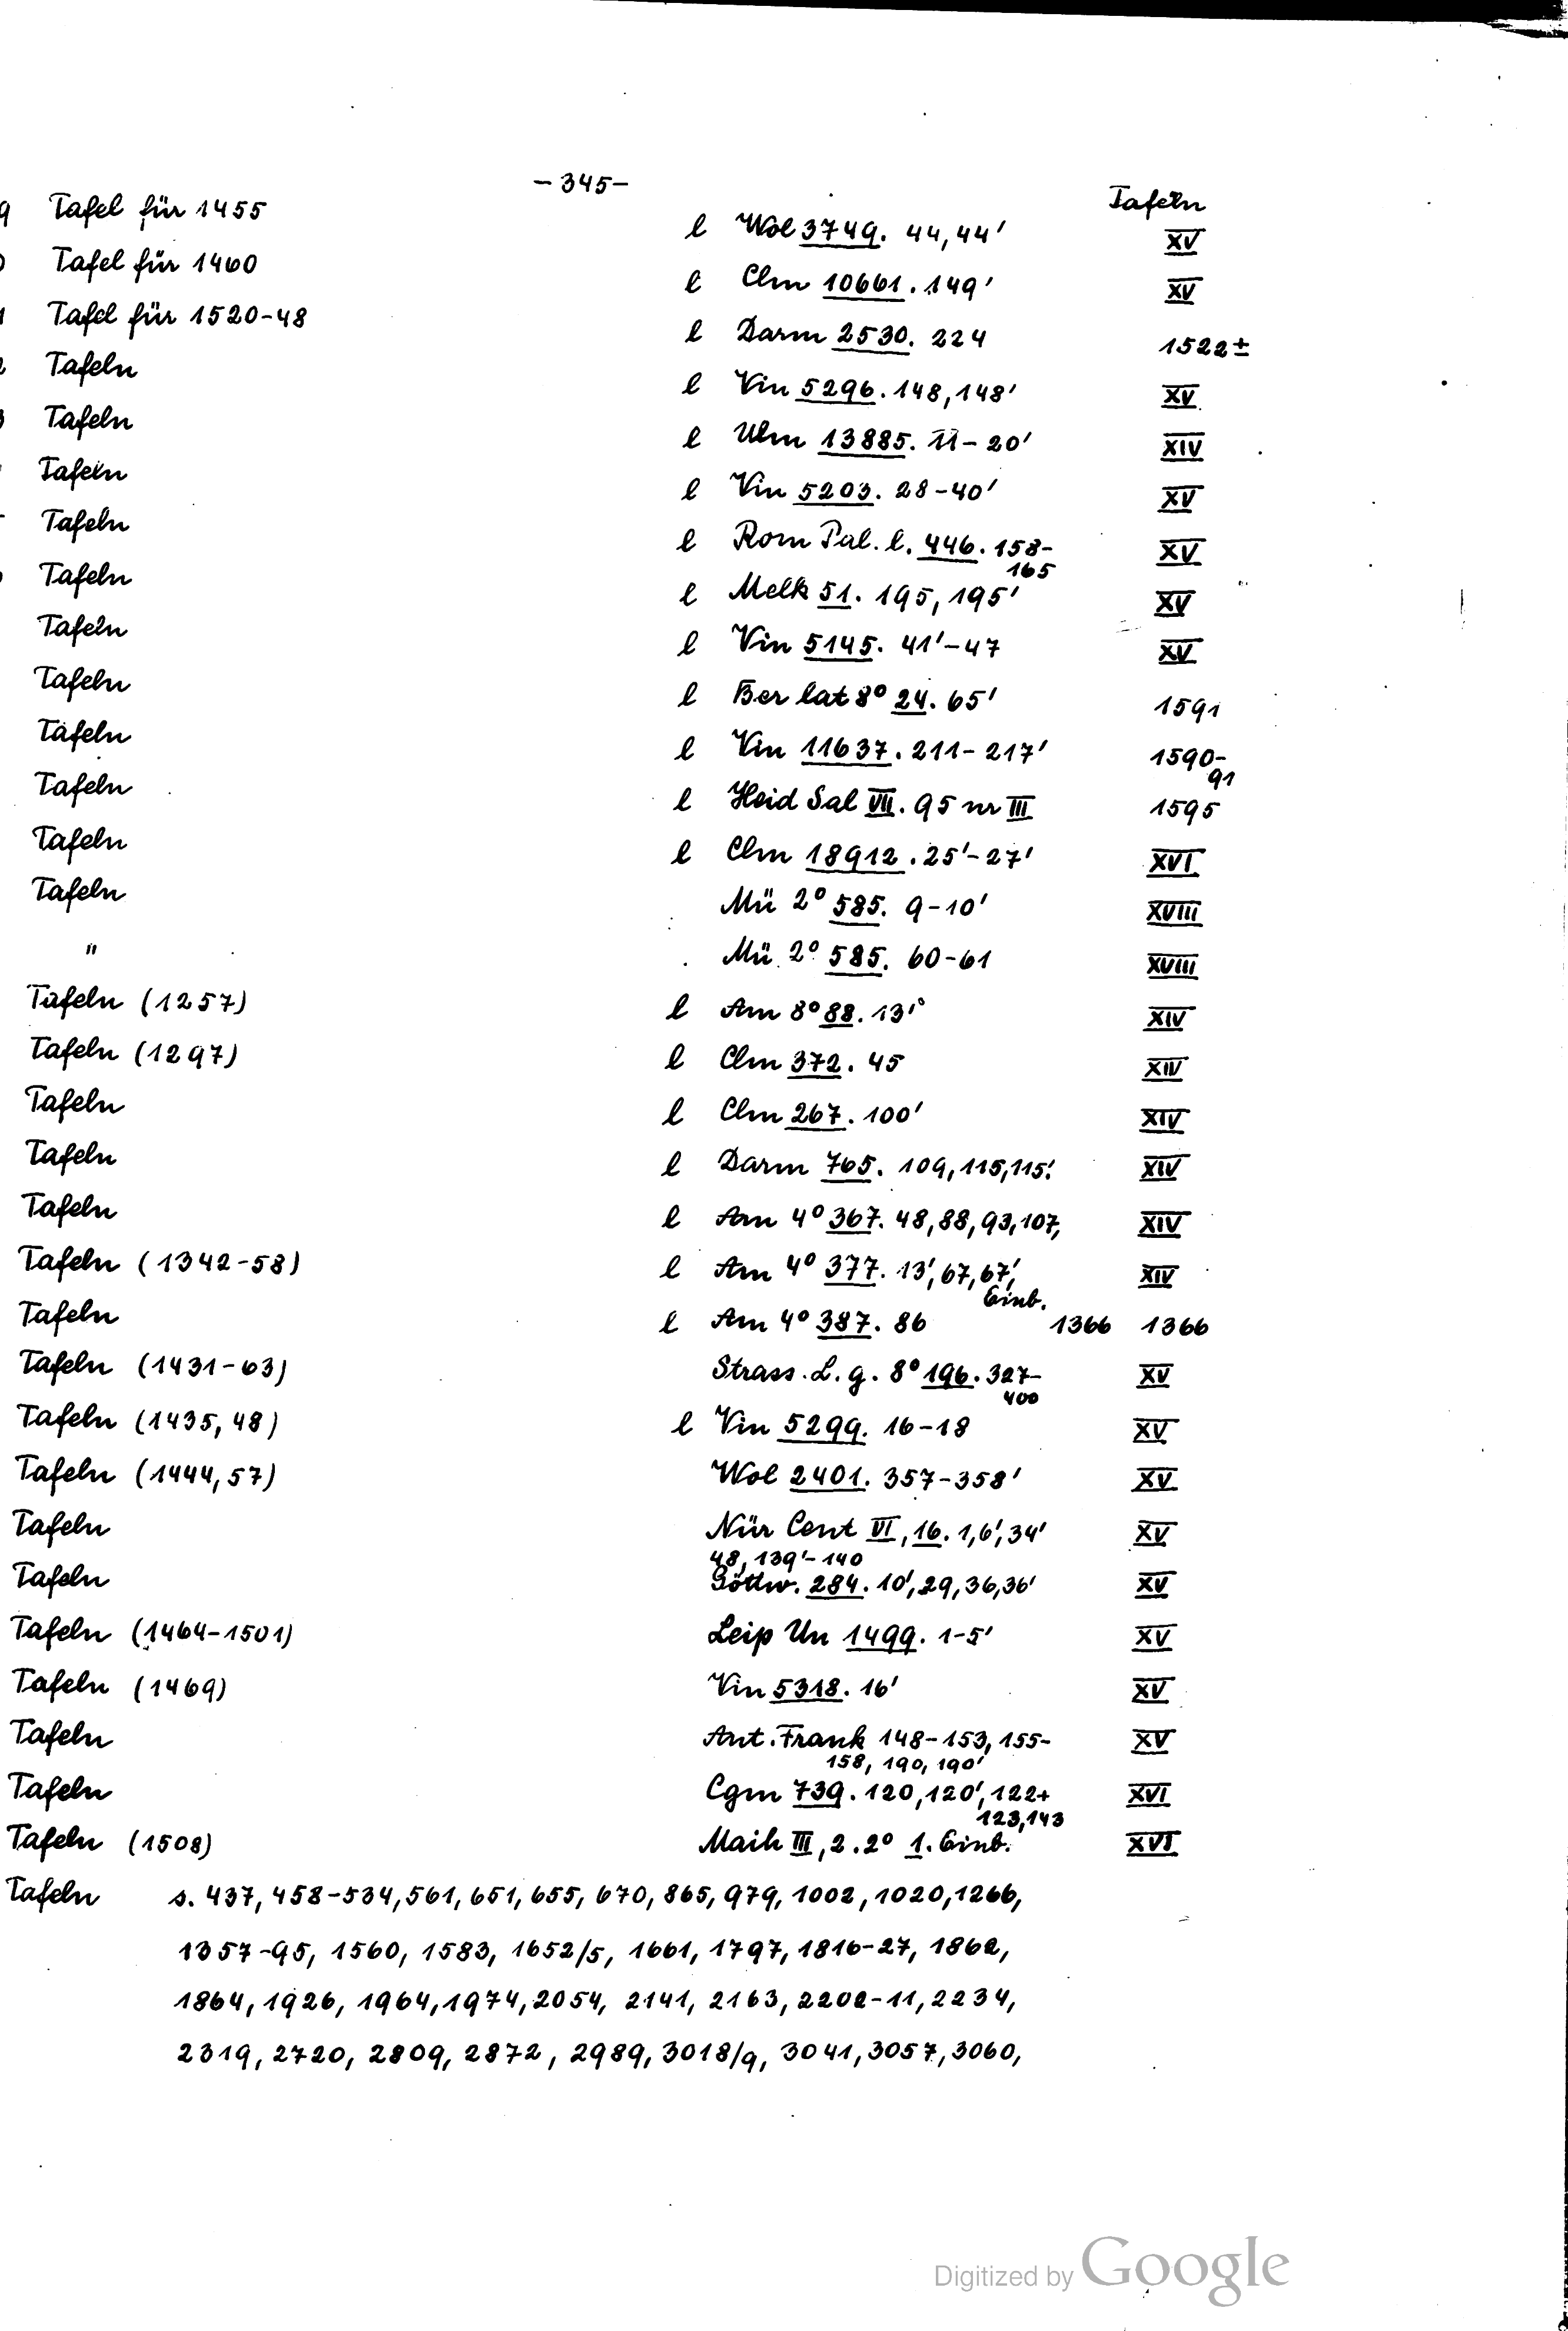 -345-
Tafeln
9 Tafel für 1455 l Wol 3749. 44,44' XV
0 Tafel für 1460 l Clm 10661. 149' XV
1 Tafel für 1520-48 l Darm 2530. 224 1522±
2 Tafeln l Vin 5296. 148,148' XV
3 Tafeln l Ulm 13885. 11-20' XIV
Tafeln l Vin 5203. 28-40' XV
Tafeln l Rom Pal. l. 446. 158- XV
165
Tafeln l Melk 51. 195, 195' XV
Tafeln l Vin 5145. 41'-47 XV
Tafeln l Ber lat 8° 24. 65' 1591
Tafeln l Vin 11637. 211-217' 1590-
91
Tafeln l Heid Sal VII. 95 nr III 1595
Tafeln l Clm 18912. 25'-27' XVI
Tafeln Mü 2° 585. 9-10' XVIII
" Mü 2° 585. 60-61 XVIII
Tafeln (1257) l Am 8° 88. 13' XIV
Tafeln (1297) l Clm 372. 45 XIV
Tafeln l Clm 267. 100' XIV
Tafeln l Darm 765. 109, 115, 115'. XIV
Tafeln l Am 4° 367. 48, 88, 93, 107, XIV
Tafeln (1342-58) l Am 4° 377. 13', 67, 67', XIV
Einb.
Tafeln l Am 4° 387. 86 1366 1366
Tafeln (1431-63) Strass. L. g. 8° 196. 327- XV
400
Tafeln (1435, 48) l Vin 5299. 16-18 XV
Tafeln (1444, 57) Wol 2401. 357-358' XV
Tafeln Nür Cent VI, 16. 1, 6', 34' XV
48, 139'-140
Tafeln Göttw. 284. 10', 29, 36, 36' XV
Tafeln (1464-1501) Leip Un 1499. 1-5' XV
Tafeln (1469) Vin 5318. 16' XV
Tafeln Ant. Frank 148-153, 155- XV
158, 190, 190'
Tafeln Cgm 739. 120, 120', 122+ XVI
123, 143
Tafeln (1508) Maih III, 2. 2° 1. Einb. XVI
Tafeln s. 437, 458-534, 561, 651, 655, 670, 865, 979, 1002, 1020, 1266,
1357-95, 1560, 1583, 1652/5, 1661, 1797, 1816-27, 1862,
1864, 1926, 1964, 1974, 2054, 2141, 2163, 2202-11, 2234,
2319, 2720, 2809, 2872, 2989, 3018/9, 3041, 3057, 3060,
Digitized by Google